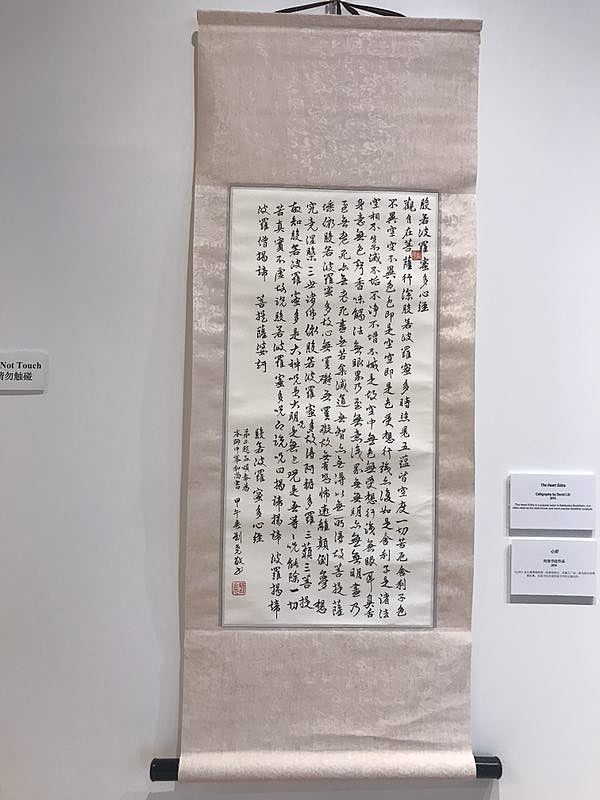 般若波羅蜜多心經
觀自在菩薩行深般若波羅蜜多時照見五蘊皆空度一切苦厄舍利子色
不異空空不異色色即是空空即是色受想行識亦復如是舍利子是諸法
空相不生滅不垢不淨不增不減是故空中無色無受想行識無眼耳鼻舌
身意無色聲香味觸法無眼界乃至無意識界無無明亦無無明盡乃
至無老死亦無老死盡無苦集滅道無智亦無得以無所得故菩提薩
埵依般若波羅蜜多故心無罣礙無罣礙故無有恐怖遠離顛倒夢想
究竟涅槃三世諸佛依般若波羅蜜多故得阿耨多羅三藐三菩提
故知般若波羅蜜多是大神咒是大明咒是無上咒是無等等咒能除一切
苦真實不虛故說般若波羅蜜多咒即說咒曰揭諦揭諦 波羅揭諦
波羅僧揭諦 菩提薩婆訶
般若波羅蜜多心經
甲午春
Not Touch
请勿触碰
The Heart Sūtra
Calligraphy by David LIU
2014
心经
2014